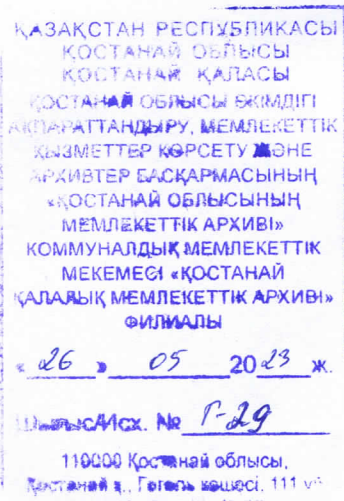 ҚАЗАҚСТАН РЕСПУБЛИКАСЫ
ҚОСТАНАЙ ОБЛЫСЫ
ҚОСТАНАЙ ҚАЛАСЫ
ҚОСТАНАЙ ОБЛЫСЫ ӘКІМДІГІ
АҚПАРАТТАНДЫРУ, МЕМЛЕКЕТТІК
ҚЫЗМЕТТЕР КӨРСЕТУ ЖӘНЕ
АРХИВТЕР БАСҚАРМАСЫНЫҢ
«ҚОСТАНАЙ ОБЛЫСЫНЫҢ
МЕМЛЕКЕТТІК АРХИВІ»
КОММУНАЛДЫҚ МЕМЛЕКЕТТІК
МЕКЕМЕСІ «ҚОСТАНАЙ
ҚАЛАЛЫҚ МЕМЛЕКЕТТІК АРХИВІ»
ФИЛИАЛЫ
« 26 » 05 2023 ж.
Шығыс/Исх. № Г-29
110000 Қостанай облысы,
Қостанай қ., Гоголь көшесі, 111 үй